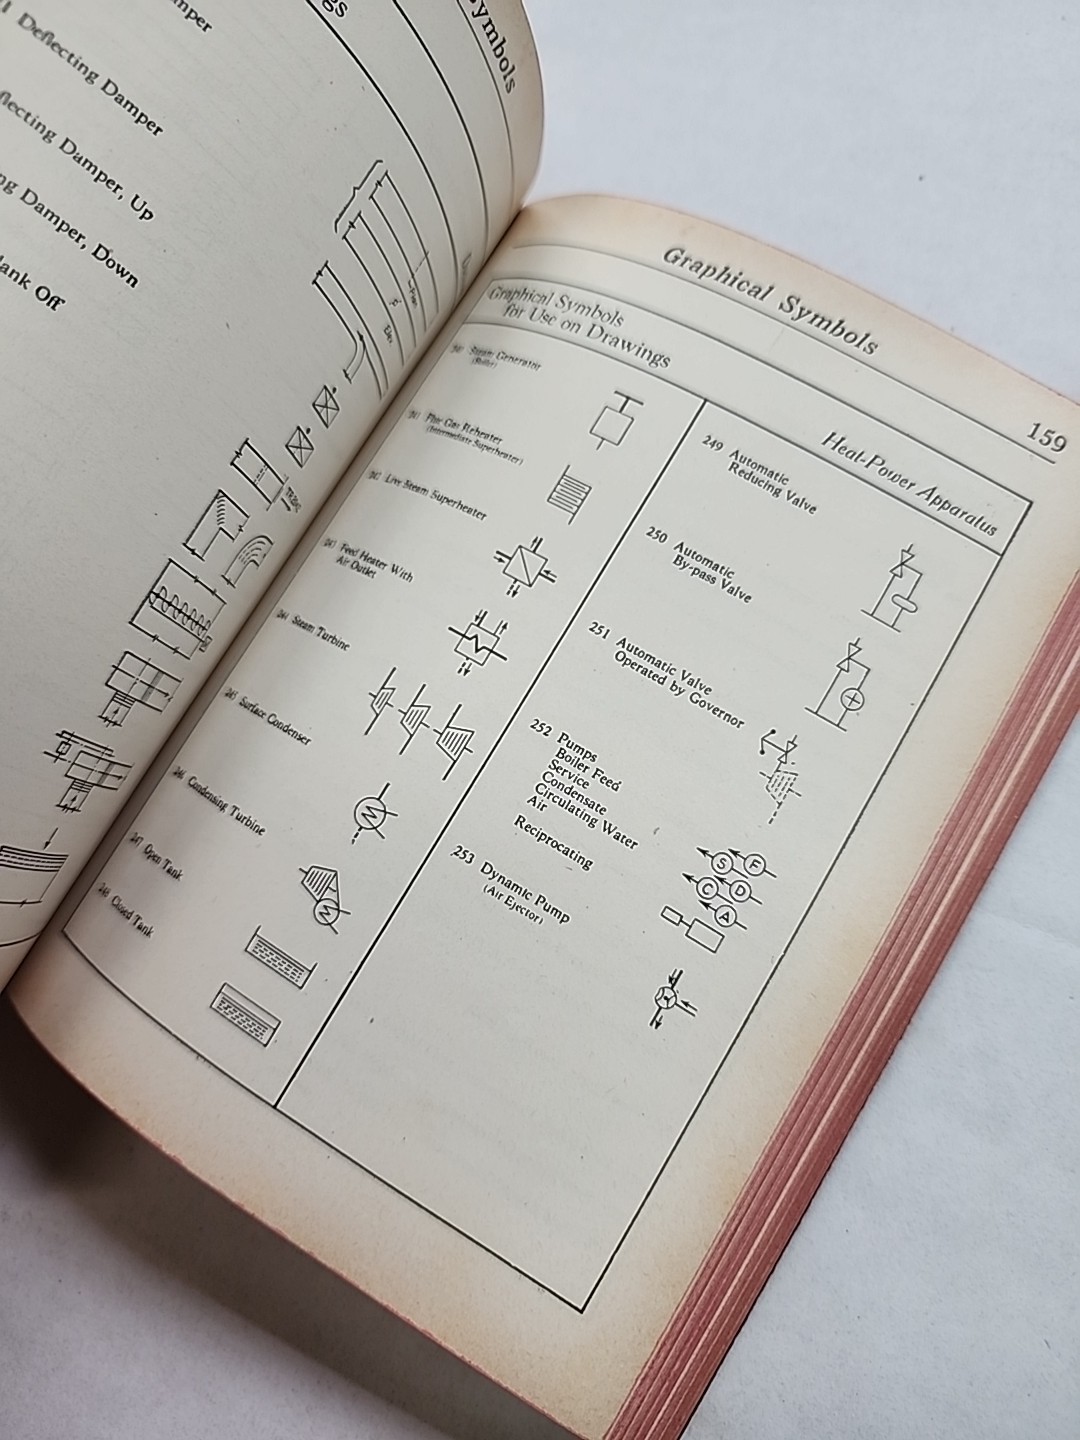 amper
Deflecting Damper
flecting Damper, Up
ng Damper, Down
lank Off
gs
ymbols
Graphical Symbols
159
Graphical Symbols
for Use on Drawings
Heat-Power Apparatus
240 Steam Generator
(Boiler)
241 Flue Gas Reheater
(Intermediate Superheater)
242 Live Steam Superheater
243 Feed Heater With
Air Outlet
244 Steam Turbine
245 Surface Condenser
246 Condensing Turbine
247 Open Tank
248 Closed Tank
249 Automatic
Reducing Valve
250 Automatic
By-pass Valve
251 Automatic Valve
Operated by Governor
252 Pumps
Boiler Feed
Service
Condensate
Circulating Water
Air
Reciprocating
S F
C D
A
253 Dynamic Pump
(Air Ejector)